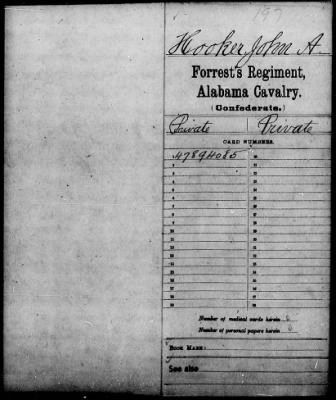 197
Hooker, John A.
Forrest's Regiment,
Alabama Cavalry.
(Confederate.)
Private Private
CARD NUMBERS.
47894085
Number of medical cards herein 0
Number of personal papers herein 0
BOOK MARK:
See also